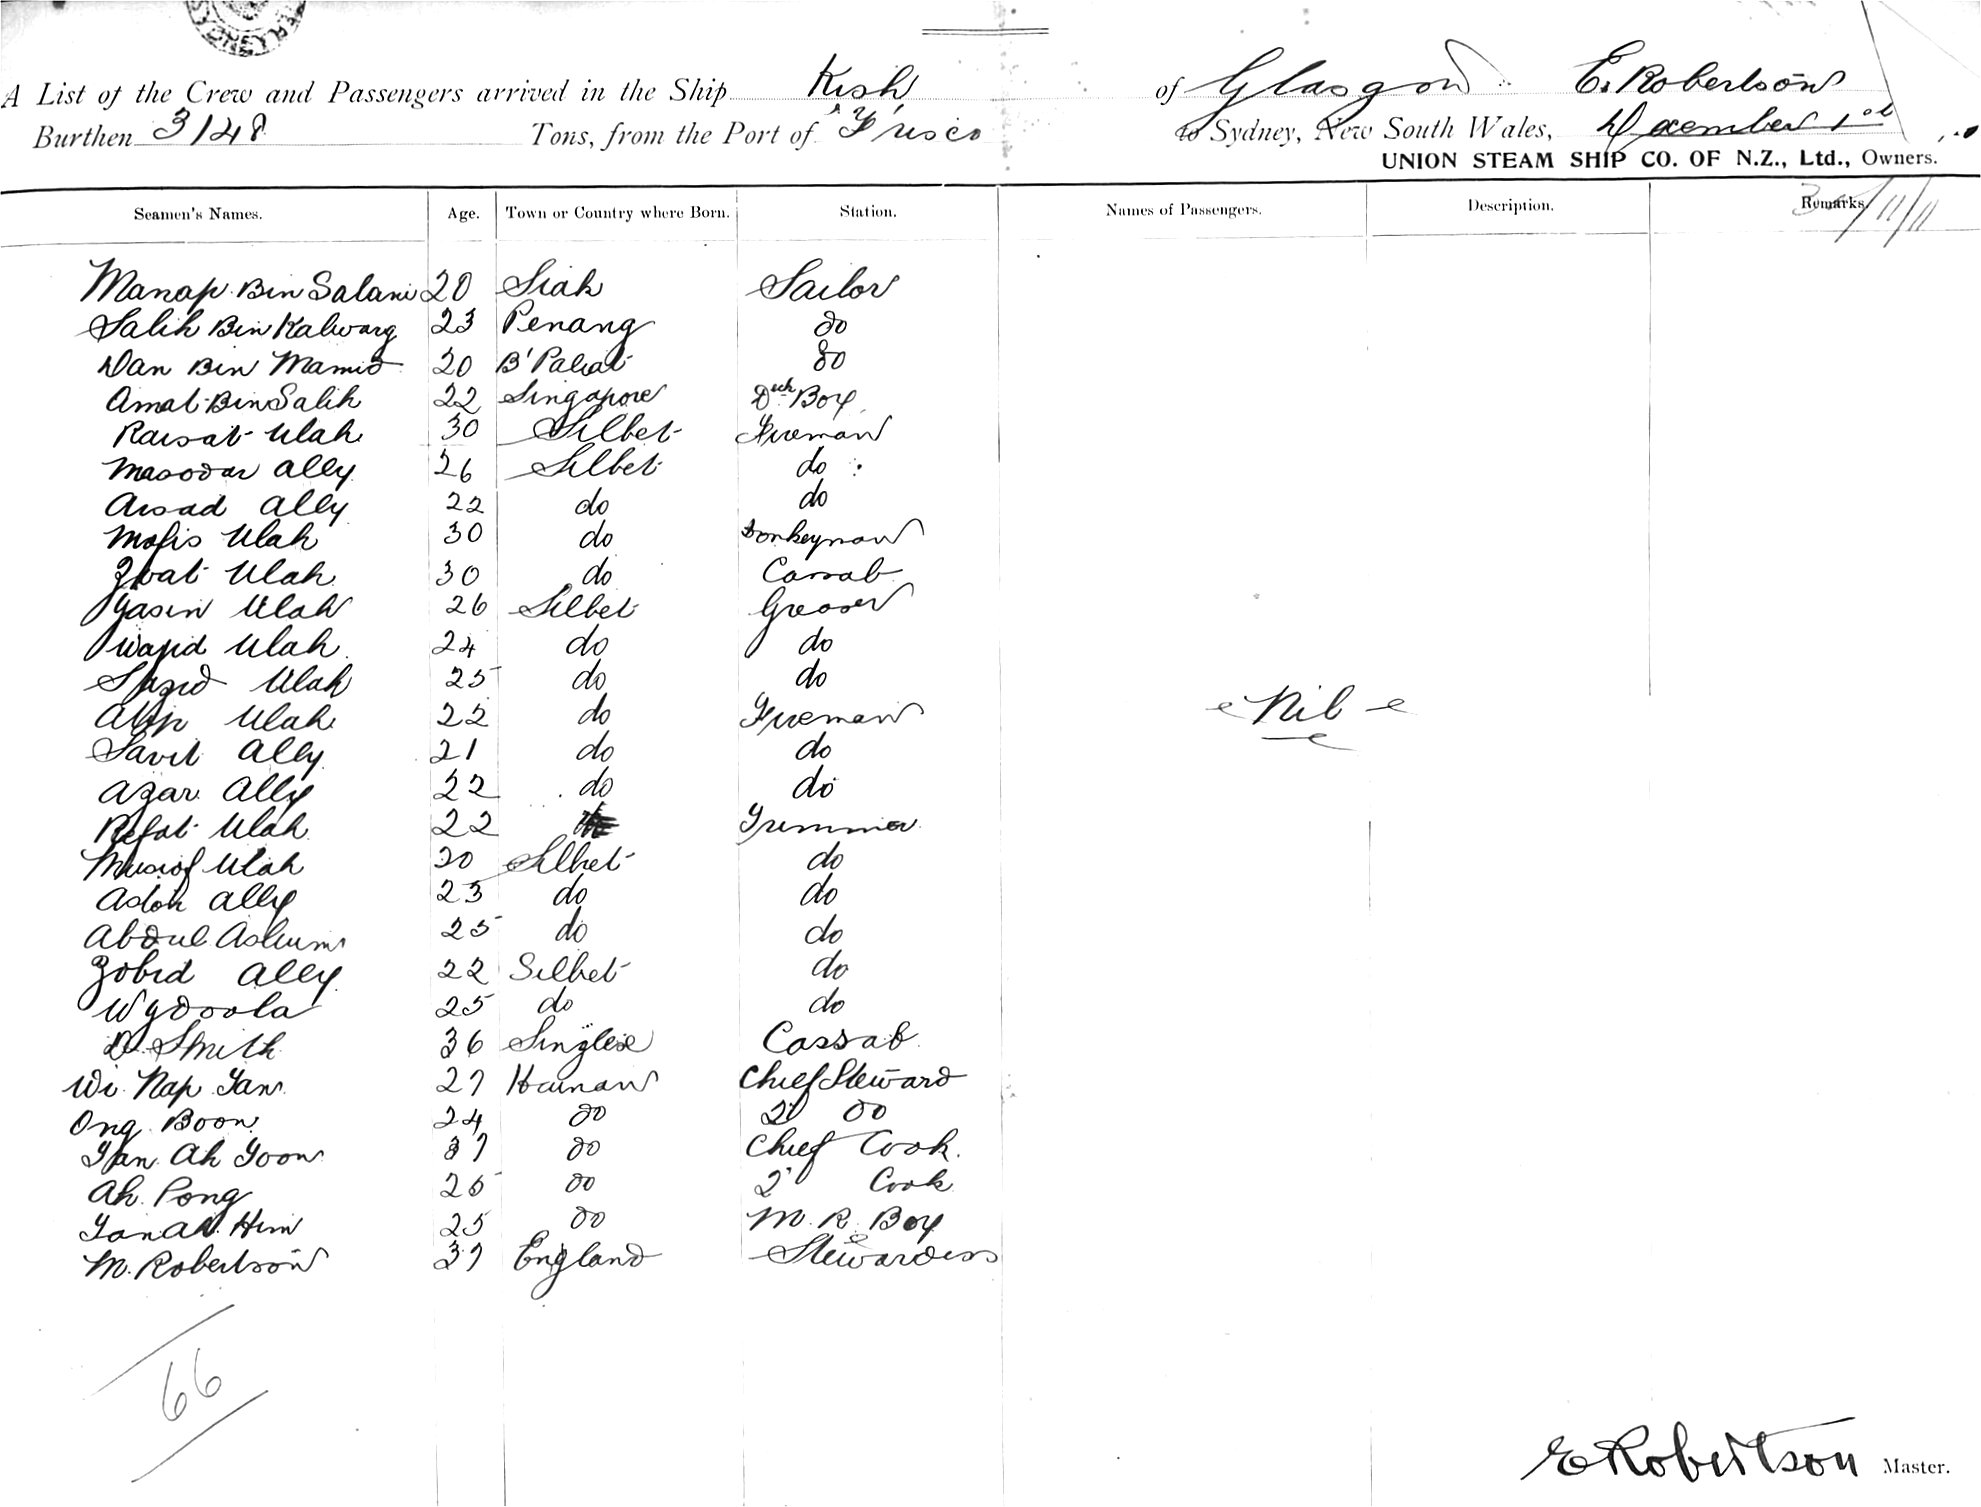 A List of the Crew and Passengers arrived in the Ship Kish of Glasgow E. Robertson
Burthen 3148 Tons, from the Port of 'Frisco to Sydney, New South Wales, December 1st
UNION STEAM SHIP CO. OF N.Z., Ltd., Owners.
Seamen's Names. Age. Town or Country where Born. Station. Names of Passengers. Description. Remarks.
/11/11
Manap Bin Salani 20 Siak Sailor
Salih Bin Kalwang 23 Penang do
Dan Bin Mamid 20 B'Pahat do
Amat Bin Salih 22 Singapore Deck Boy
Raisat Ulah 30 Silbet Fireman
Masodar Ally 26 Silbet do
Arsad Ally 22 do do
Mofis Ulah 30 do Donkeyman
Zpat Ulah 30 do Cassab
Yasin Ulah 26 Silbet Greaser
Wajid Ulah 24 do do
Sazid Ulah 25 do do
Alip Ulah 22 do Fireman
Savil Ally 21 do do
Azar Ally 22 do do
Refat Ulah 22 Trimmer
Musrof Ulah 20 Silhet do
Aslok Ally 23 do do
Abdul Ashum 25 do do
Zobid Ally 22 Silhet do
Wydoola 25 do do
D. Smith 36 Singlese Cassab
Wi Nap Tan 27 Hainan Chief Steward
Ong Boon 24 do 2 do
Tan Ah Yoon 37 do Chief Cook.
Ah Pong 25 do 2 Cook
Tan Ah Him 25 do M. R. Boy
M. Robertson 37 England Stewardess
Nil
66
E Robertson Master.